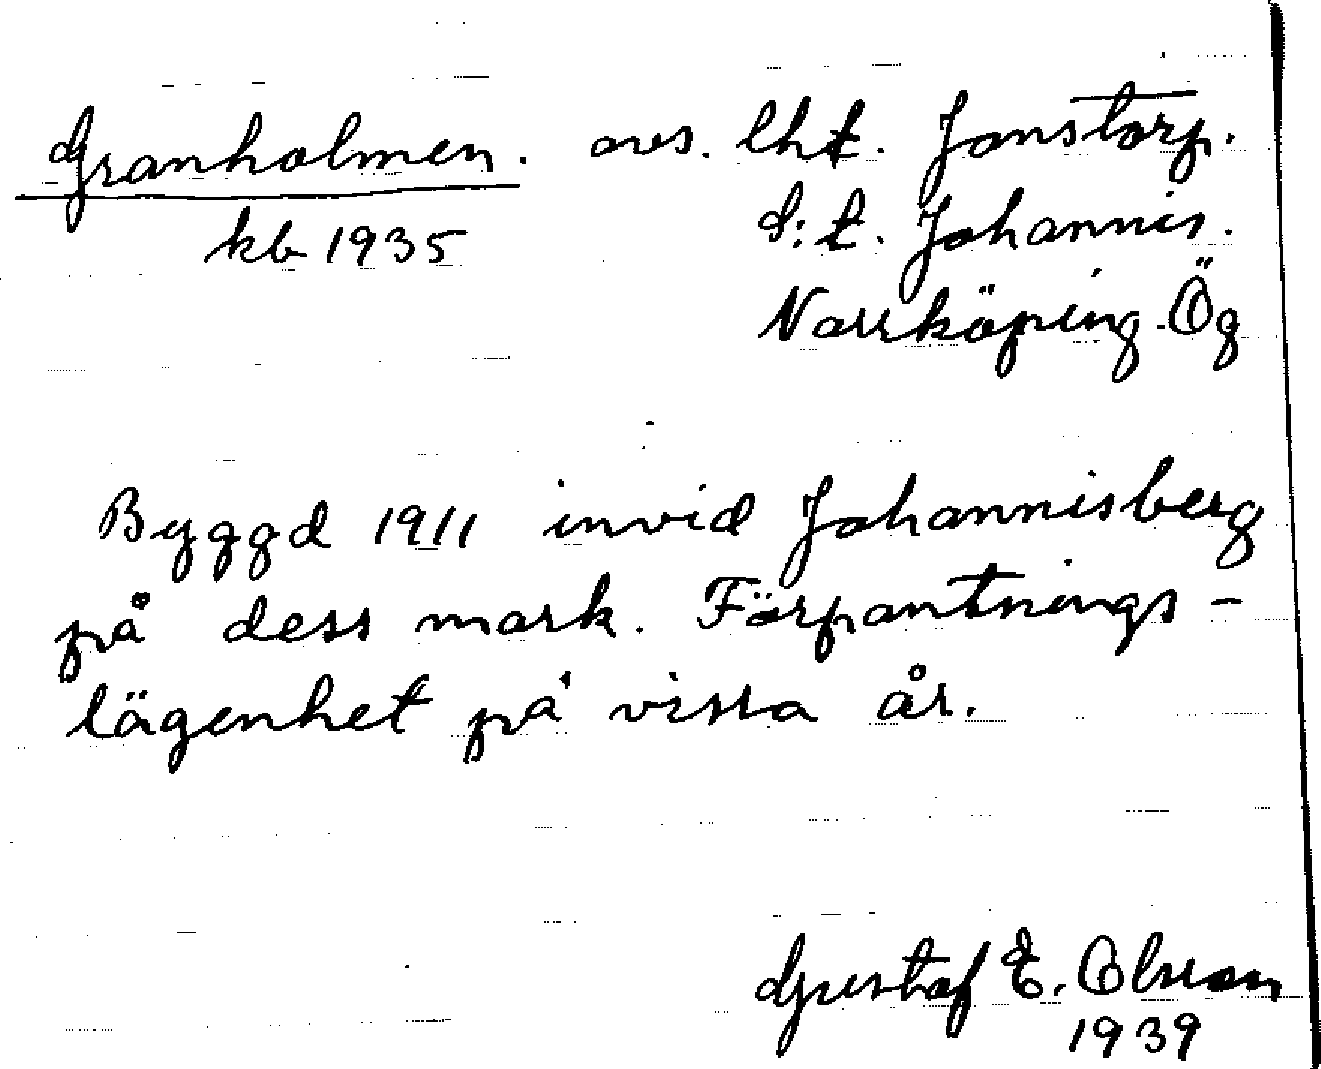 Granholmen. avs. lht. Jonstorp.
kb 1935 S:t. Johannis.
Norrköping Ög
Byggd 1911 invid Johannisberg
på dess mark. Förpantnings-
lägenhet på vissa år.
Gustaf E. Olsson
1939